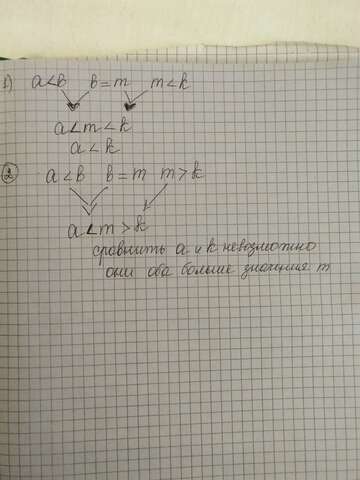 1) a<в в=m m<k
a<m<k
a<k
2 a<в в=m m>k
a<m>k
сравнить a и k невозможно
они оба больше значения m